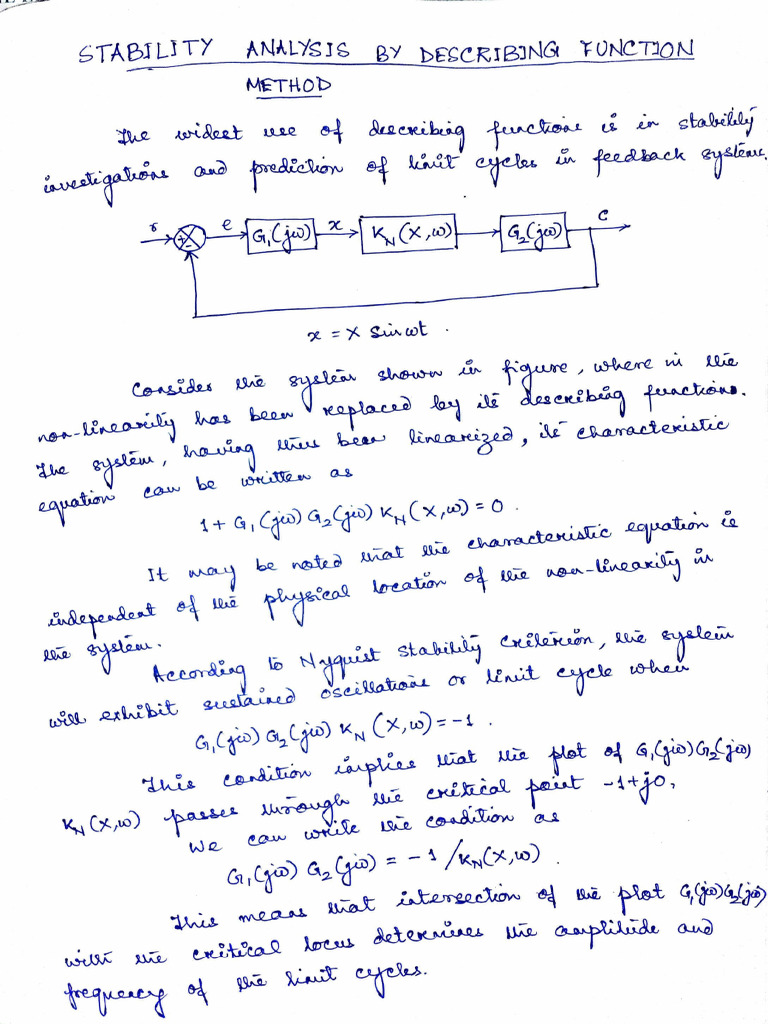 STABILITY ANALYSIS BY DESCRIBING FUNCTION
METHOD
The widest use of describing functions is in stability
investigations and prediction of limit cycles in feedback systems.
r e G₁(jω) x K_N(X,ω) G₂(jω) C
+ -
x = X Sin ωt .
Consider the system shown in figure, where in the
non-linearity has been replaced by its describing functions.
The system, having thus been linearized, its characteristic
equation can be written as
1 + G₁(jω) G₂(jω) K_N(X,ω) = 0 .
It may be noted that the characteristic equation is
independent of the physical location of the non-linearity in
the system.
According to Nyquist stability criterion, the system
will exhibit sustained oscillations or limit cycle when
G₁(jω) G₂(jω) K_N(X,ω) = -1 .
This condition implies that the plot of G₁(jω)G₂(jω)
K_N(X,ω) passes through the critical point -1+j0.
We can write the condition as
G₁(jω) G₂(jω) = -1/K_N(X,ω) .
This means that intersection of the plot G₁(jω)G₂(jω)
with the critical locus determines the amplitude and
frequency of the limit cycles.